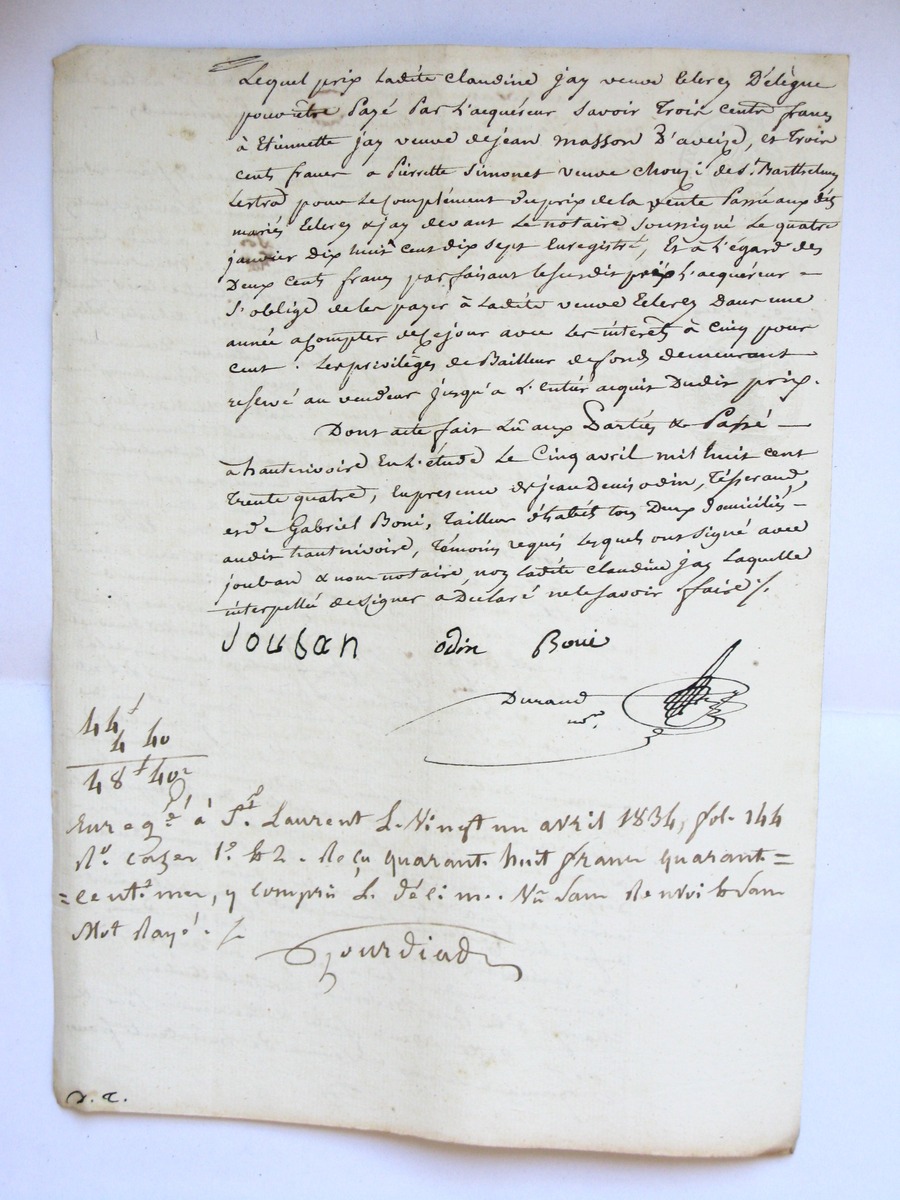 Lequel prix Ladite Claudine jay veuve Clerc Délègue
pour être Payé Par l'acquéreur Savoir Trois cents francs
à Etiennette jay veuve de jean masson D'aveize, et Trois
cents francs a Pierrette Simonet veuve de St. Barthelemy
Lestra pour le complément du prix de la vente Passée aux dits
mariés & jay devant Le notaire Soussigné Le quatre
janvier dix huit cent dix sept Enregistré, Et à l'égard des
Deux Cents francs parfaisant le susdit prix l'acquereur =
S'oblige de les payer à Ladite veuve Dans une
année a Compter de ce jour avec Les interets à cinq pour
Cent. Les privilèges de Bailleur de fonds demeurant
reservé au vendeur jusqu'a l'entier acquit Dudit prix.
Dont acte fait Lû aux Parties & Passé —
à hauterivoire En L'étude Le Cinq avril mil huit cent
Trente quatre, En presence de jean Denis odin, Tisserand,
et de Gabriel Boni, Tailleur d'habits tous Deux domiciliés =
audit hauterivoire, Témoins requis Lesquels ont signé avec
jouban & nous notaire, non Ladite Claudine jay Laquelle
interpellée de signer a Déclaré ne le savoir faire ./.
Jouban odin Boni
Durand
nre.
44f
4 40
48f 40c
Enregé à St. Laurent Le Vingt un avril 1834, fol. 144
Ro. Cazes 1e. & 2. Reçu quarante huit francs quarante =
= centimes, y compris Le décime. Nu Sans Renvoi & Sans
Mot Rayé. /.
Gourdiad